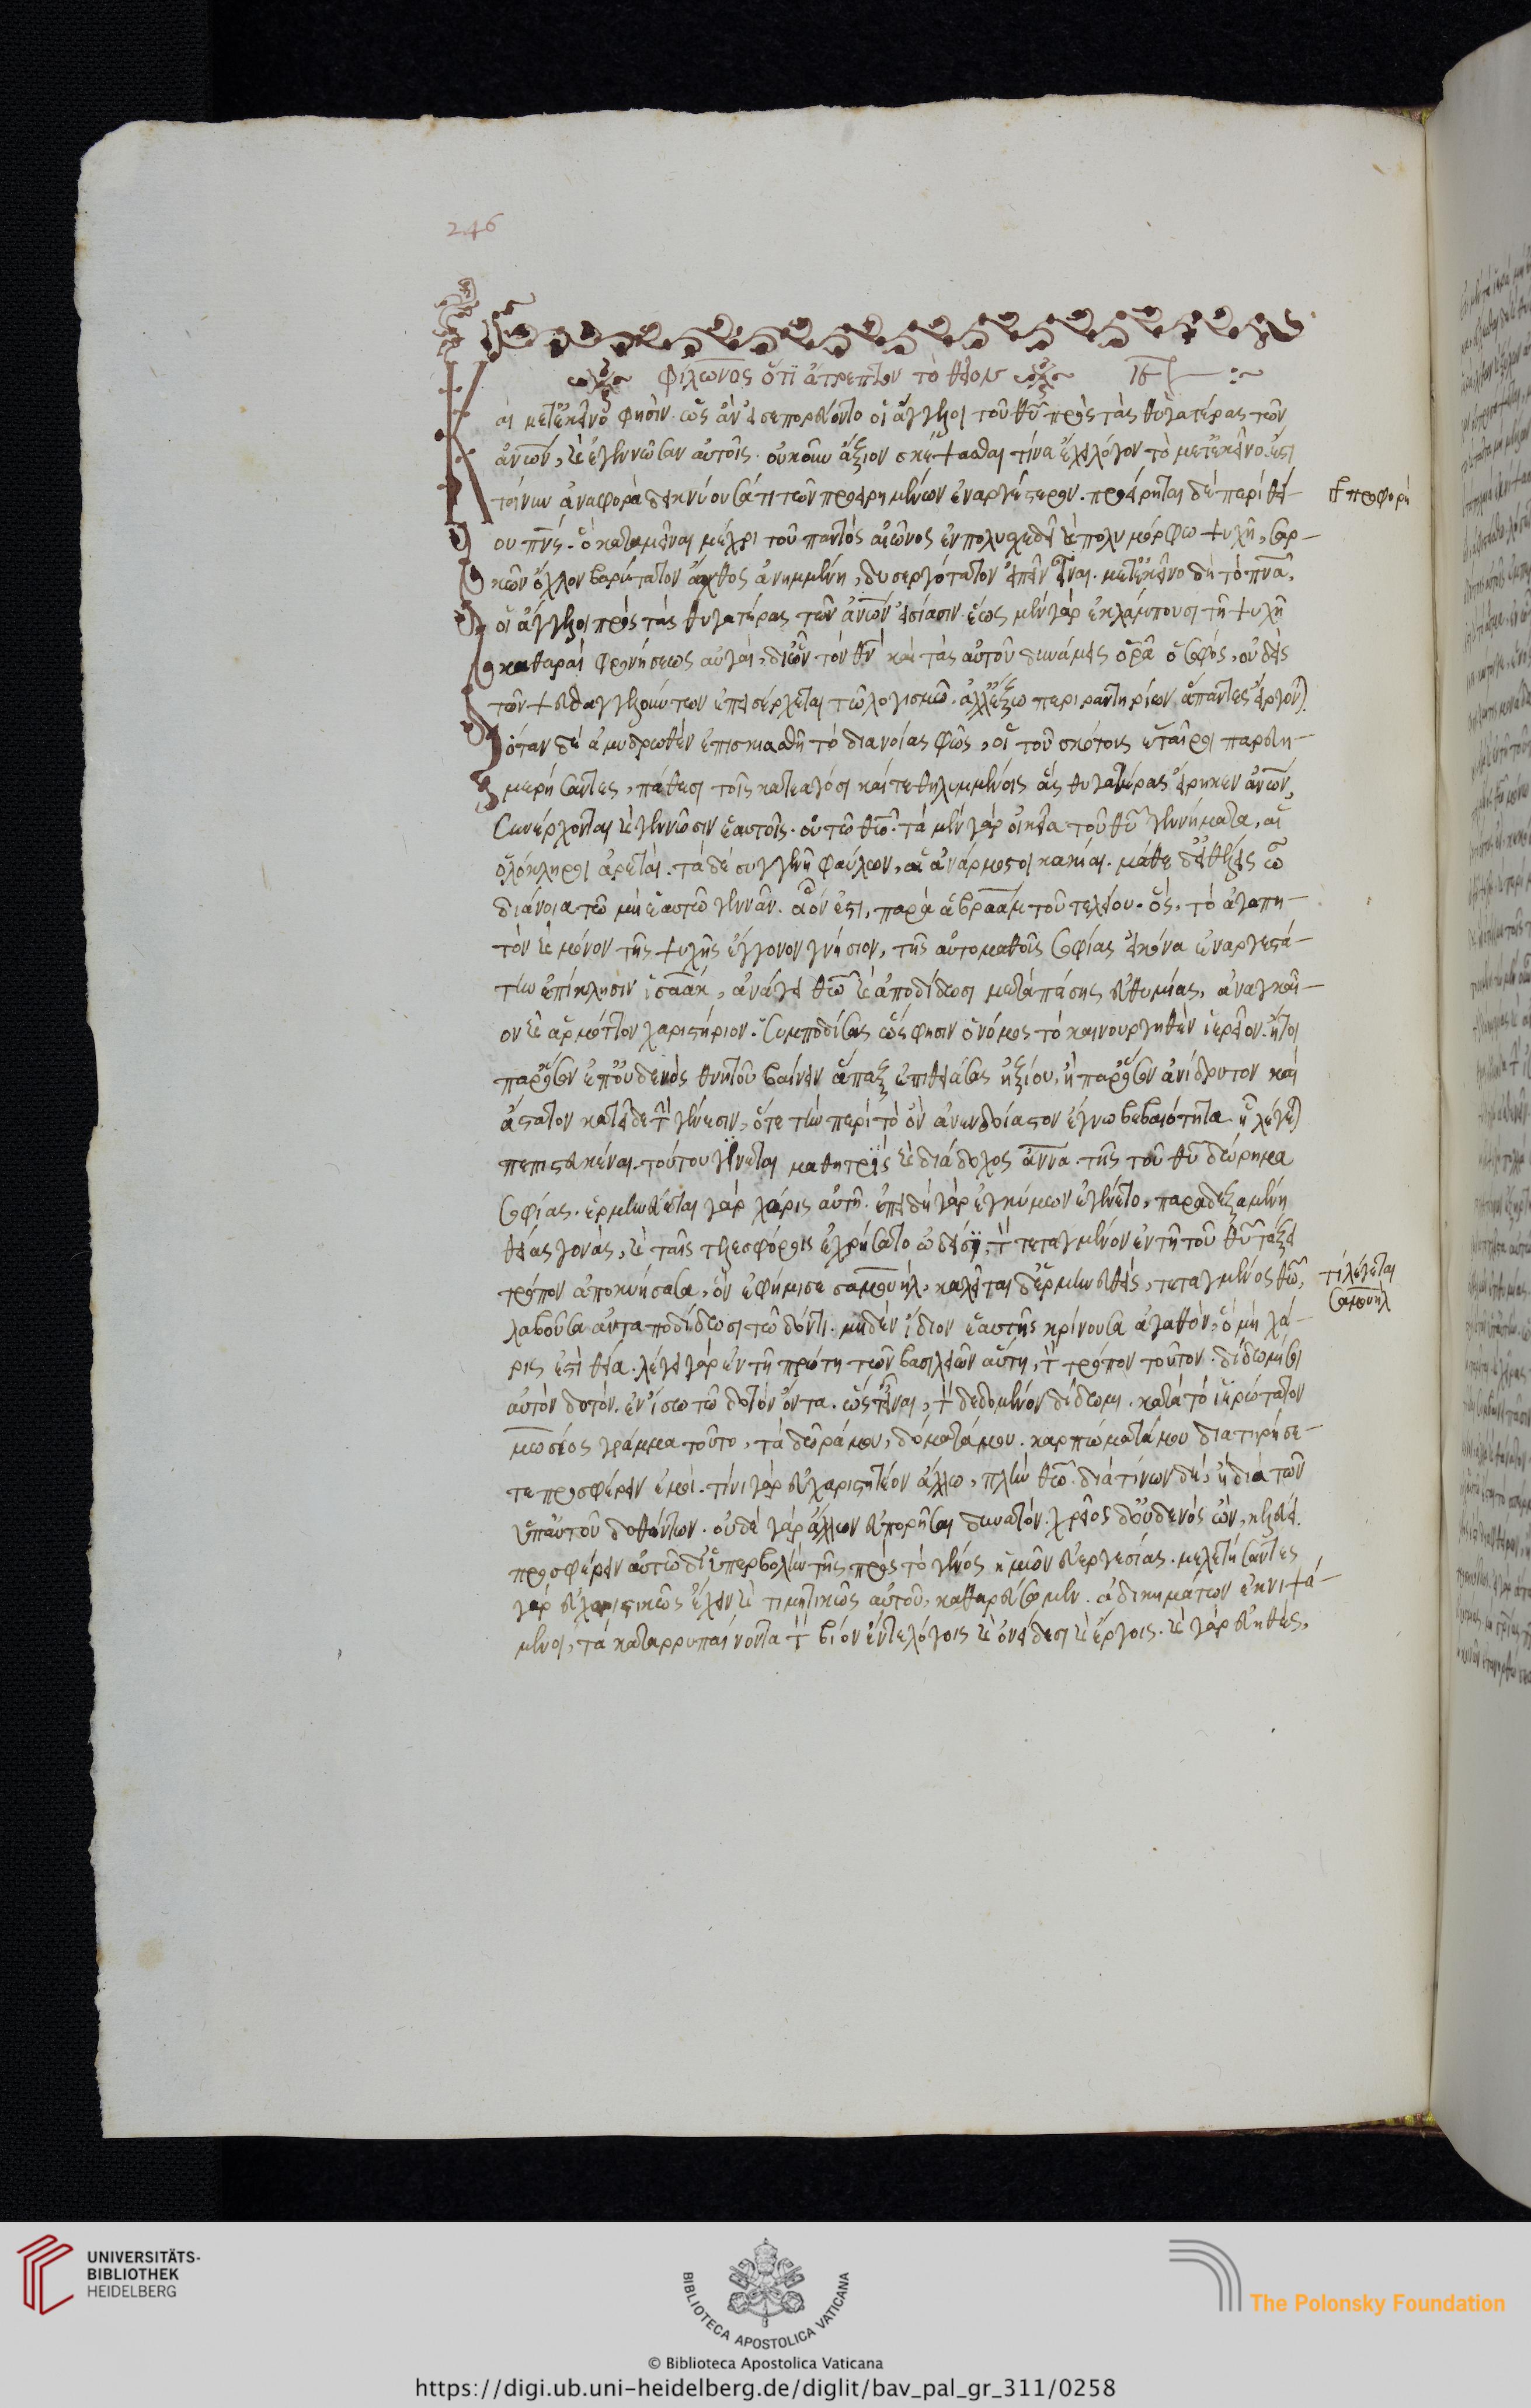 246
Φίλωνος ὅτι ἄτρεπτον τὸ θεῖον ιϛ
Καὶ μετ' ἐκεῖνο φησὶν ὡς ἂν εἰσεπορεύοντο οἱ ἄγγελοι τοῦ θυ πρὸς τὰς θυγατέρας τῶν
ἀνων, καὶ ἐγέννωσαν αὐτοῖς. οὐκοῦν ἄξιον σκέψασθαι τίνα ἔχει λόγον τὸ μετ' ἐκεῖνο. ἔστι
τοίνυν ἀναφορὰ δεικνύουσά τι τῶν προειρημένων ἐναργέστερον. προείρηται δὲ περὶ θεί-
ου πνς. ὃ καταμεῖναι μέχρι τοῦ παντὸς αἰῶνος ἐν πολυσχεδεῖ καὶ πολυμόρφω ψυχῇ, σαρ-
κῶν ὄχλον βαρύτατον ἄχθος ἀνημμένη, δυσεργότατον εἰπὲν εἶναι. μετ' ἐκεῖνο δὴ τὸ πνα,
οἱ ἄγγελοι πρὸς τὰς θυγατέρας τῶν ἀνων εἰσίασιν. ἕως μὲν γὰρ ἐκλάμπουσι τῇ ψυχῇ
καθαραὶ φρονήσεως αὐγαί, δι' ὧν τὸν θν καὶ τὰς αὐτοῦ δυνάμεις ὁρᾷ ὁ σοφός, οὐδεὶς
τῶν ψευδαγγελούντων ἐπεισέρχεται τῶ λογισμῶ. ἀλλ' ἔξω περιραντηρίων ἅπαντες εἴργονται.
ὅταν δὲ ἀμυδρωθὲν ἐπισκιασθῇ τὸ διανοίας φῶς, οἱ τοῦ σκότους ἑταῖροι παρευη-
μερήσαντες, πάθεσι τοῖς κατεαγόσι καὶ τεθηλυμμένοις ἃς θυγατέρας εἴρηκεν ἀνων,
συνέρχονται καὶ γεννῶσιν ἑαυτοῖς. οὐ τῶ θω. τὰ μὲν γὰρ οἰκεῖα τοῦ θυ γεννήματα, αἱ
ὁλόκληροι ἀρεταί. τὰ δὲ συγγενῆ φαύλων, αἱ ἀνάρμοστοι κακίαι. μάθε δ' εἰ θέλεις ὦ
διάνοια τῶ μὴ ἑαυτῶ γεννᾶν. οἷόν ἐστι, παρὰ ἀβραὰμ τοῦ τελείου. ὃς, τὸ ἀγαπη-
τὸν καὶ μόνον τῆς ψυχῆς ἔγγονον γνήσιον, τῆς αὐτομαθοῦς σοφίας εἰκόνα ἐναργεστά-
την ἐπίκλησιν ἰσαάκ, ἀνάγει θω καὶ ἀποδίδωσι μετὰ πάσης εὐθυμίας, ἀναγκαῖ-
ον καὶ ἁρμόττον χαριστήριον. συμποδίσας ὥς φησιν ὁ νόμος τὸ καινουργηθὲν ἱερεῖον. ἤτοι
παρόσον ἐπ' οὐδενὸς θνητοῦ βαίνειν ἅπαξ ἐπιθειάσας ἠξίου, ἢ παρόσον ἀνίδρυτον καὶ
ἄστατον κατεῖδε τὴν γένεσιν, ὅτε τὴν περὶ τὸ ὂν ἀνενδοίαστον ἔγνω βεβαιότητα ᾗ λέγεται
πεπιστευκέναι. τούτου γίνεται μαθητρὶς καὶ διάδοχος ἄννα. τῆς τοῦ θυ δώρημα
σοφίας. ἑρμηνεύεται γὰρ χάρις αὐτῆς. ἐπειδὴ γὰρ ἐγκύμων ἐγένετο, παραδεξαμένη
θείας γονάς, καὶ ταῖς τελεσφόροις ἐχρήσατο ὠδῖσι, τὸν τεταγμένον ἐν τῇ τοῦ θυ τάξει
τρόπον ἀποκυήσασα, ὃν ἐφήμισε σαμουήλ, καλεῖται δ' ἑρμηνευθεὶς, τεταγμένος θω,
λαβοῦσα ἀνταποδίδωσι τῶ δόντι. μηδὲν ἴδιον ἑαυτῆς κρίνουσα ἀγαθὸν, ὃ μὴ χά-
ρις ἐστὶ θεία. λέγει γὰρ ἐν τῇ πρώτῃ τῶν βασιλειῶν αὕτη, τὸν τρόπον τοῦτον. δίδωμί σοι
αὐτὸν δοτόν. ἐν ἴσω τῶ δοτὸν ὄντα. ὥστ' εἶναι, τὸν δεδομένον δίδωμι. κατὰ τὸ ἱερώτατον
μωσέος γράμμα τοῦτο, τὰ δῶρά μου, δόματά μου, καρπώματά μου διατηρήσε-
τε προσφέρειν ἐμοί. τίνι γὰρ εὐχαριστητέον ἄλλω, πλὴν θω. διὰ τίνων δέ, ἢ διὰ τῶν
ὑπ' αὐτοῦ δοθέντων. οὐδὲ γὰρ ἄλλων εὐπορῆσαι δυνατόν. χρεῖος δ' οὐδενὸς ὢν, κελεύει
προσφέρειν αὐτῶ δι' ὑπερβολὴν τῆς πρὸς τὸ γένος ἡμῶν εὐεργεσίας. μελετήσαντες
γὰρ εὐχαριστικῶς ἔχειν καὶ τιμητικῶς αὐτοῦ, καθαρεύσομεν. ἀδικημάτων ἐκνιψά-
μενοι, τὰ καταρρυπαίνοντα τὸν βίον ἔν τε λόγοις καὶ ὀνείδεσι καὶ ἔργοις. καὶ γὰρ εὔηθες,
προφορὰ
τί λέγεται
σαμουήλ
UNIVERSITÄTS-
BIBLIOTHEK
HEIDELBERG
BIBLIOTECA APOSTOLICA VATICANA
The Polonsky Foundation
© Biblioteca Apostolica Vaticana
https://digi.ub.uni-heidelberg.de/diglit/bav_pal_gr_311/0258